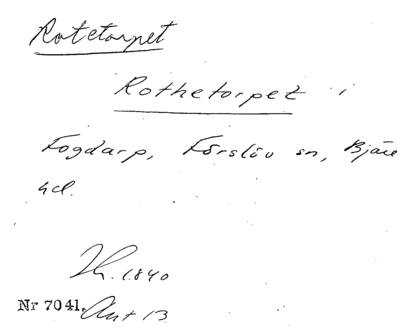 Rotetorpet
Rothetorpet i
Fogdarp, Förslöv sn, Bjäre
hd.
Th. 1840
Nr 7041. Ant 13